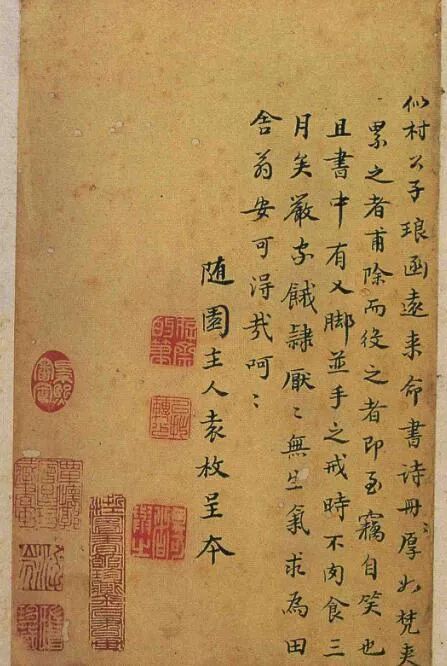 似村公子琅函遠来命書诗冊厚如梵夹
累之者甫除而役之者即至竊自笑也
且書中有叉脚並手之戒時不肉食三
月矣嚴家餓隸厭〻無生氣求為田
舍翁安可得哉呵〻
随園主人袁枚呈本